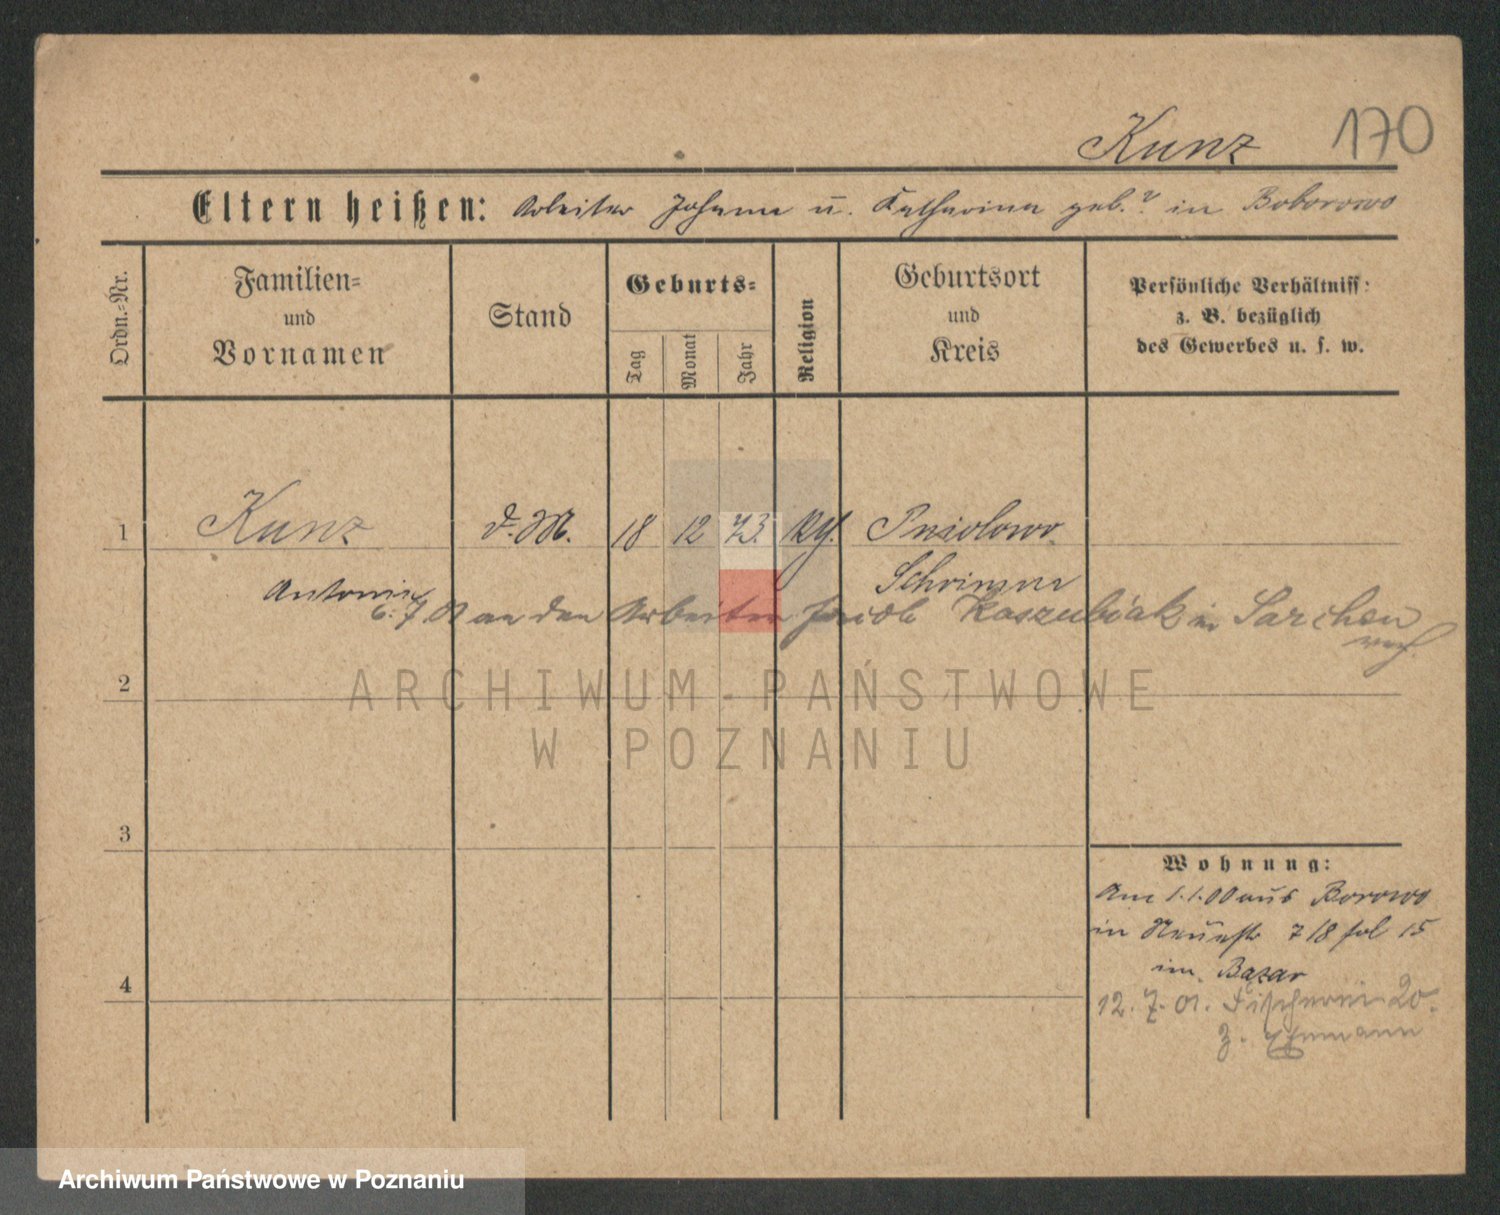 Kunz 170
Eltern heißen: Arbeiter Johann u. Katharina geb. ? in Boborowo
Ordn.-Nr.
Familien-
und
Vornamen
Stand
Geburts-
Tag
Monat
Jahr
Religion
Geburtsort
und
Kreis
Persönliche Verhältniss:
z. B. bezüglich
des Gewerbes u. s. w.
1 Kunz d. M. 18 12 73. Kth. Psiolowo
Antonie Schrimm
6. 7 01 an den Arbeiter Jacob Kaszubiak in
2
ARCHIWUM PAŃSTWOWE
W POZNANIU
3
Wohnung:
Am 1.1.00 aus Borowo
in Neuestr 7/8 fol 15
im Bazar
4
12. 7. 01. Fischerei 20.
z. Ehemann
Archiwum Państwowe w Poznaniu